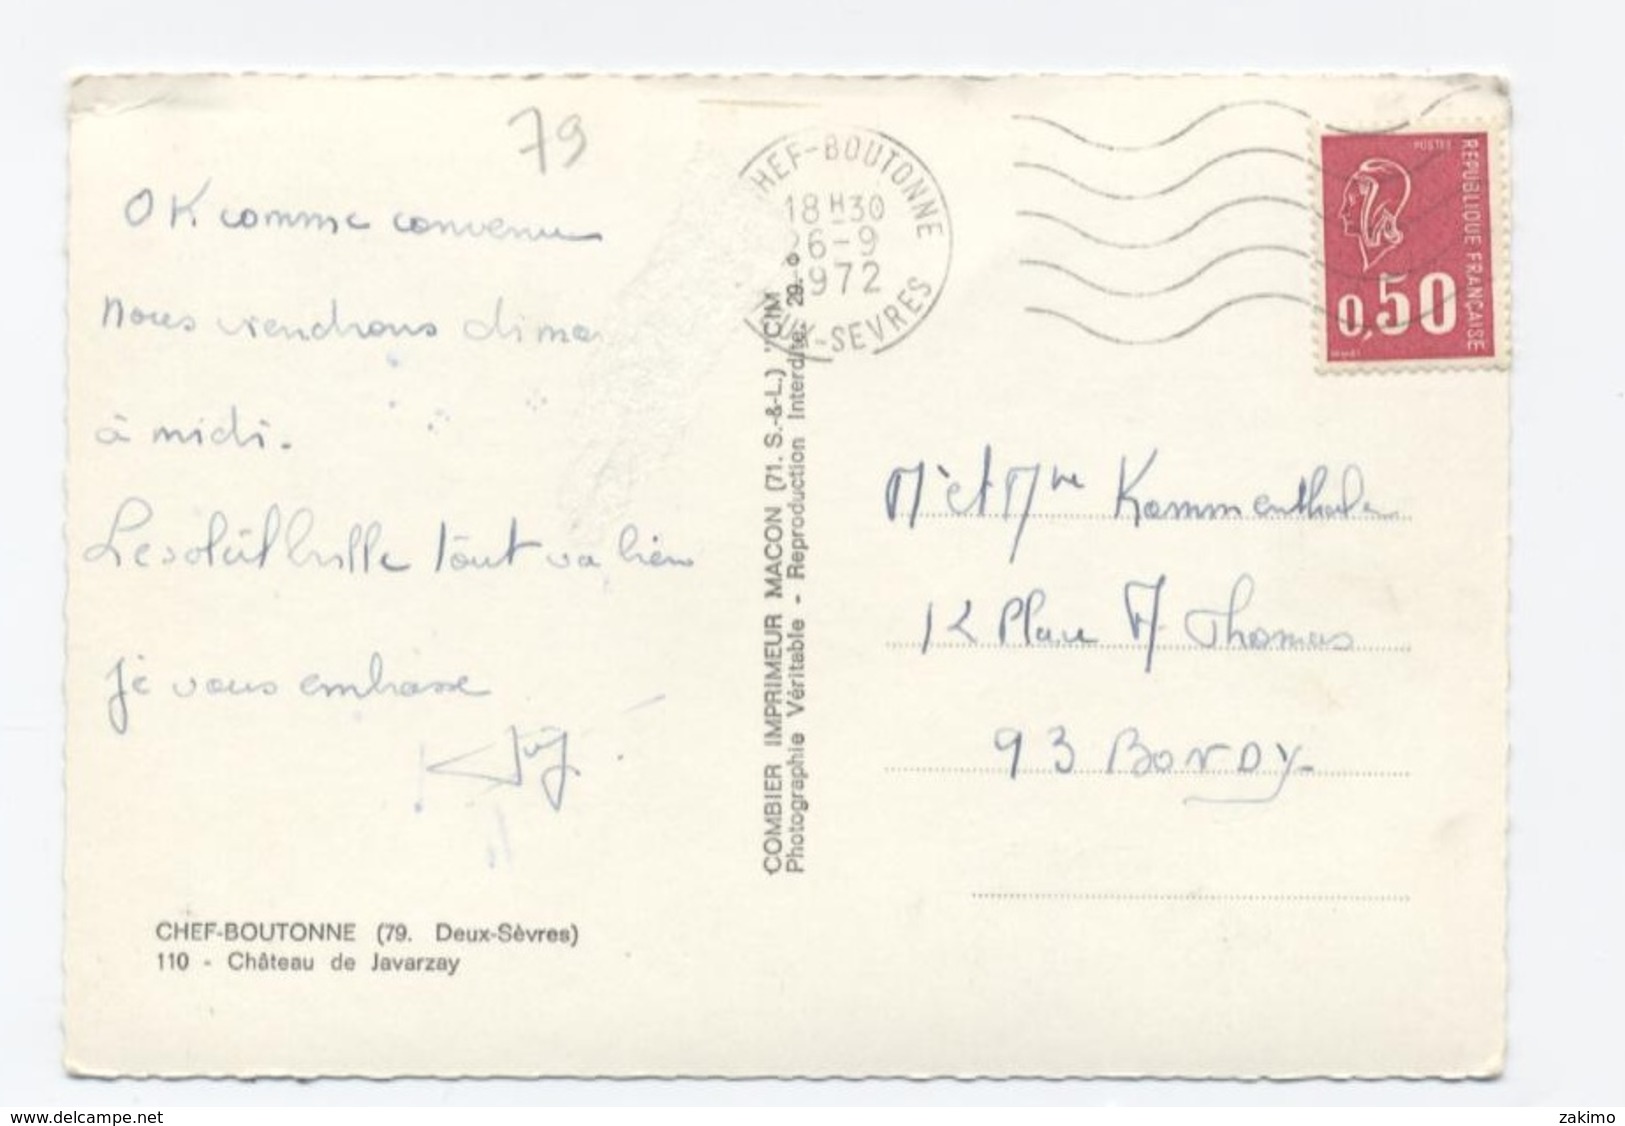 79
OK comme convenu
Nous viendrons dima
à midi.
Le soleil brille tout va bien
je vous embrasse
CHEF-BOUTONNE (79. Deux-Sèvres)
110 - Château de Javarzay
COMBIER IMPRIMEUR MACON (71. S.-&-L.) "CIM
Photographie Véritable - Reproduction Interdite. 29.
HEF-BOUTONNE
18 H 30
26-9
1972
UX-SEVRES
POSTES
REPUBLIQUE FRANÇAISE
0,50
Mr et Mme Kammenthaler
12 Place A. Thomas
93 BONDY
delcampe.net
zakimo